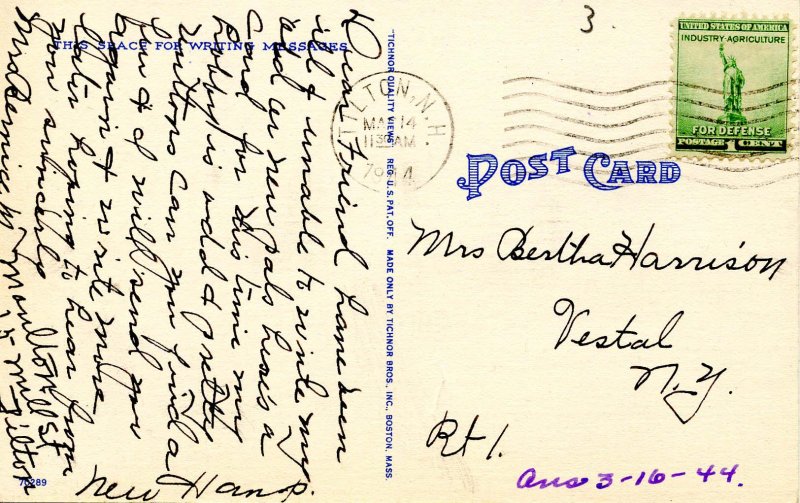 THIS SPACE FOR WRITING MESSAGES
Dear Friend have been
sick & unable to write my
old or new pals here's a
Card for this time my
Hobby is odd & pretty
buttons Can you find a
few & I will send you
again & write more
later hoping to hear from
you sincerely
Mrs Bernice M Moulton
15 Mill St
Tilton
New Hamp.
70289
"TICHNOR QUALITY VIEWS" REG. U.S. PAT. OFF. MADE ONLY BY TICHNOR BROS., INC., BOSTON, MASS.
3
TILTON, N.H.
MAR 14
1130 AM
UNITED STATES OF AMERICA
INDUSTRY-AGRICULTURE
FOR DEFENSE
POSTAGE 1 CENT
POST CARD
Mrs Bertha Harrison
Vestal
N.Y.
Rt 1.
Ans 3-16-44.